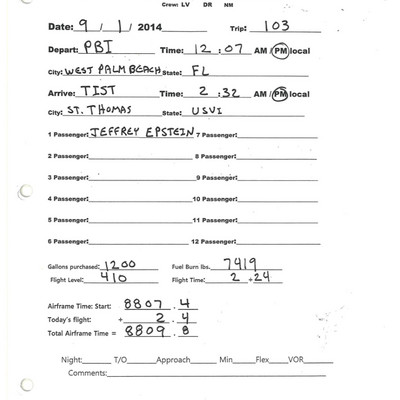 Crew: LV DR NM
Date: 9 / 1 / 2014 Trip: 103
Depart: PBI Time: 12 : 07 AM / PM local
City: WEST PALM BEACH State: FL
Arrive: TIST Time: 2 : 32 AM / PM local
City: ST. THOMAS State: USVI
1 Passenger: JEFFREY EPSTEIN 7 Passenger:
2 Passenger: 8 Passenger:
3 Passenger: 9 Passenger:
4 Passenger: 10 Passenger:
5 Passenger: 11 Passenger:
6 Passenger: 12 Passenger:
Gallons purchased: 1200 Fuel Burn lbs. 7419
Flight Level: 410 Flight Time: 2 + 24
Airframe Time: Start: 8807 . 4
Today's flight: + 2 . 4
Total Airframe Time = 8809 . 8
Night: T/O Approach Min Flex VOR
Comments: